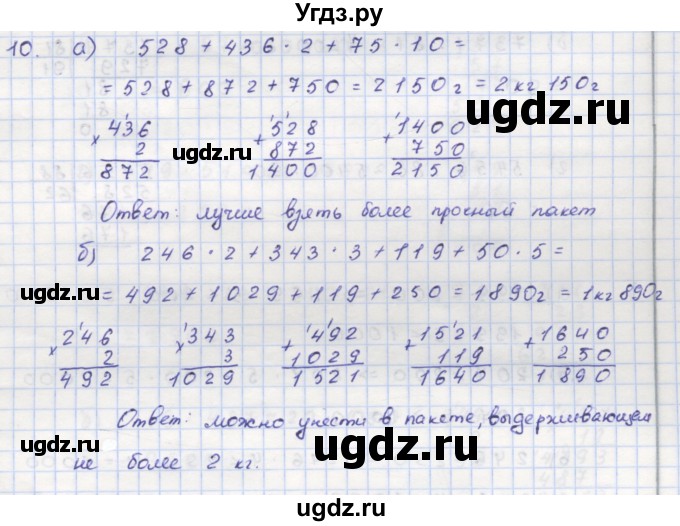 Угдз.ру
10. а) 528 + 436 · 2 + 75 · 10 =
= 528 + 872 + 750 = 2150 г = 2 кг 150 г
× 436 + 528 + 1400
2 872 750
872 1400 2150
Ответ: лучше взять более прочный пакет
б) 246 · 2 + 343 · 3 + 119 + 50 · 5 =
= 492 + 1029 + 119 + 250 = 1890 г = 1 кг 890 г
× 246 × 343 + 492 + 1521 + 1640
2 3 1029 119 250
492 1029 1521 1640 1890
Ответ: можно унести в пакете, выдерживающем
не более 2 кг.
ugdz.ru
ugdz.ru
ugdz.ru
ugdz.ru
ugdz.ru
ugdz.ru
ugdz.ru
ugdz.ru
ugdz.ru